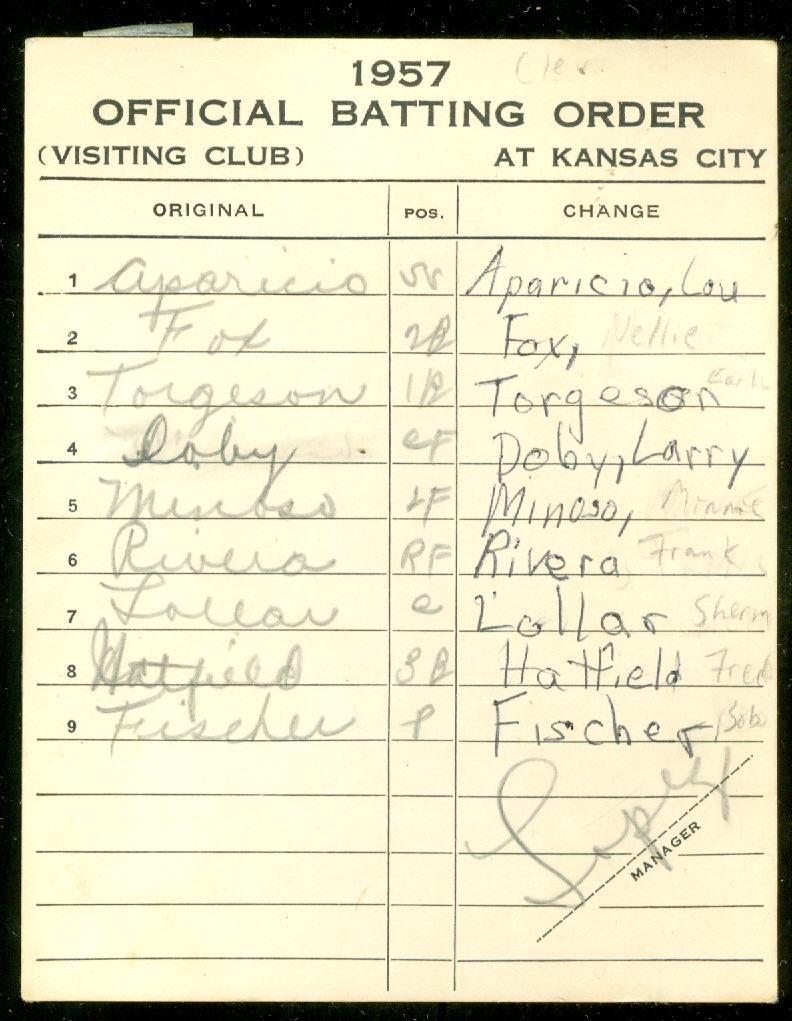 1957 Clev.
OFFICIAL BATTING ORDER
(VISITING CLUB) AT KANSAS CITY
ORIGINAL POS. CHANGE
1 Aparicio SS Aparicio, Lou
2 Fox 2B Fox, Nellie
3 Torgeson 1B Torgeson Earl
4 Doby CF Doby, Larry
5 Minoso LF Minoso, Minnie
6 Rivera RF Rivera Frank
7 Lollar C Lollar Sherm
8 Hatfield 3B Hatfield Fred
9 Fischer P Fischer, Bob
MANAGER